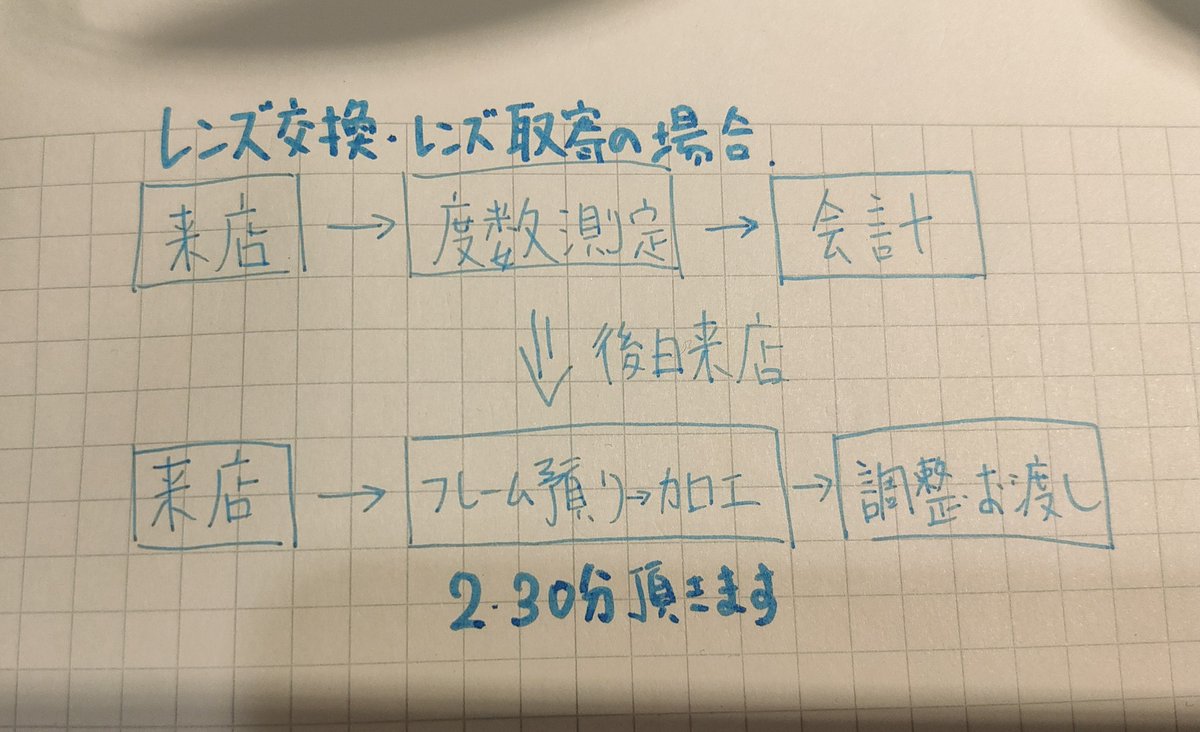 レンズ交換・レンズ取寄の場合.
来店 → 度数測定 → 会計
⇓ 後日来店
来店 → フレーム預り→加工 → 調整・お渡し
2・30分頂きます